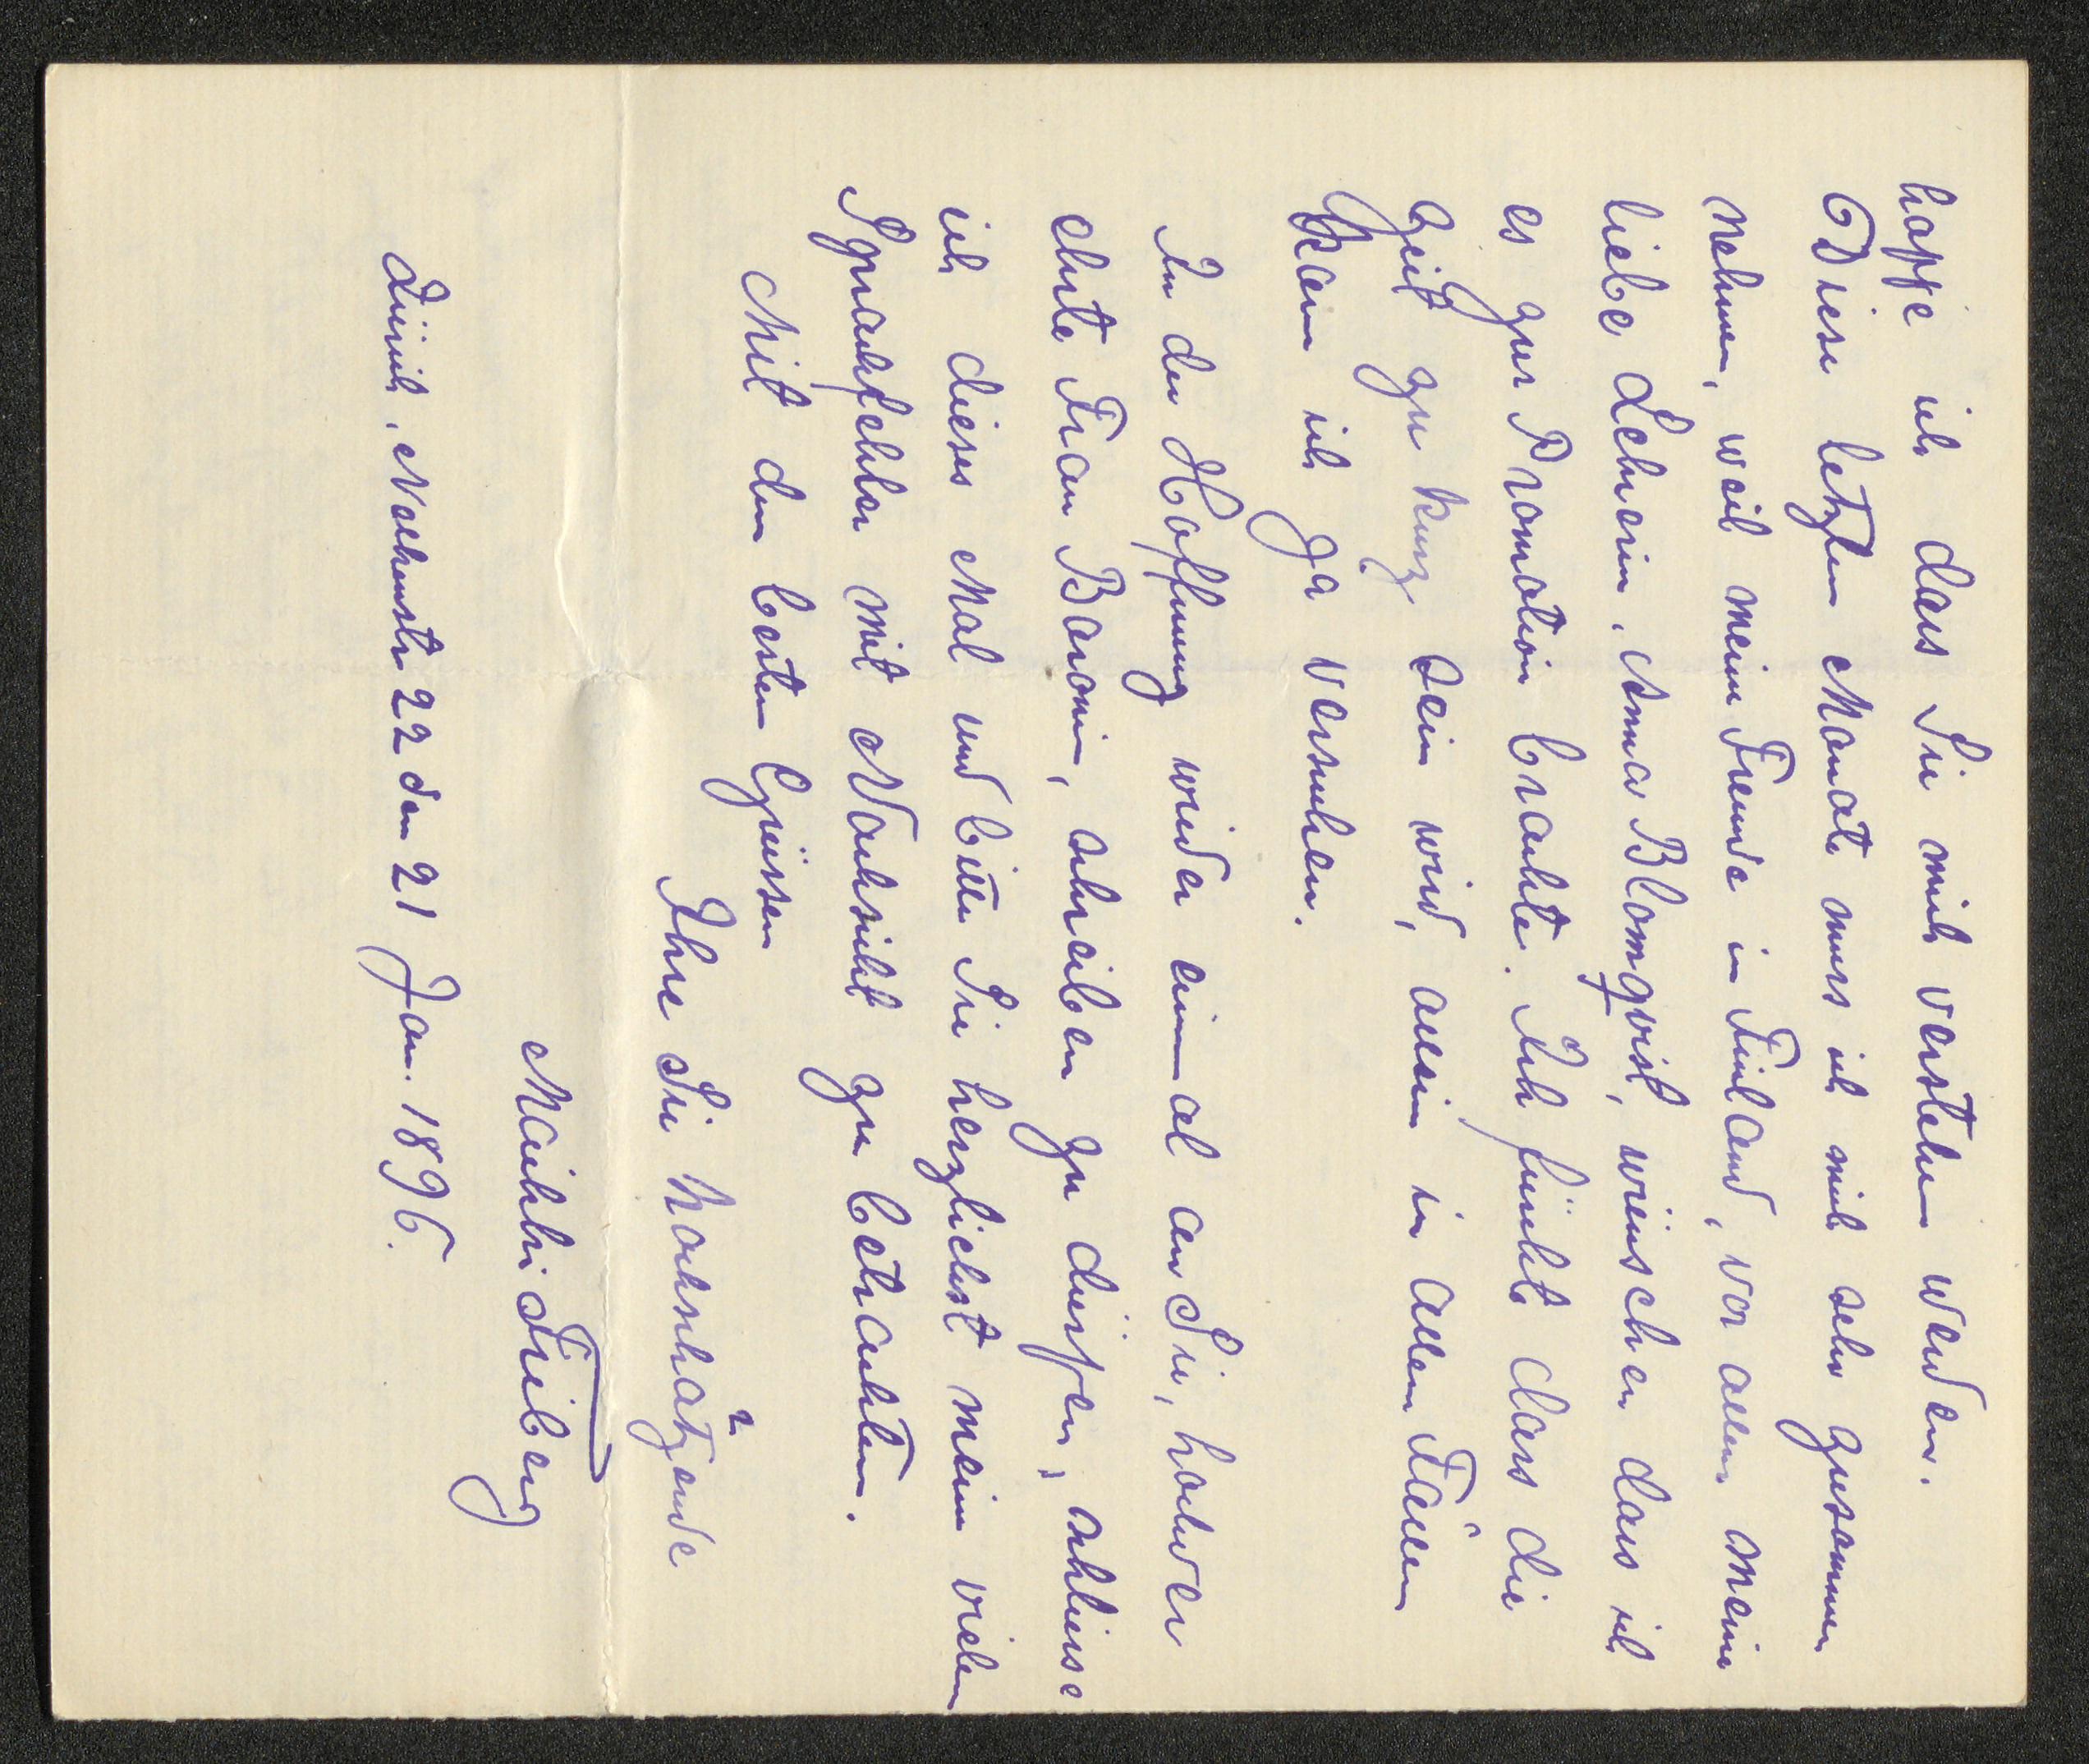 hoffe ich dass Sie mich verstehen werden.
Diese letzten Monate muss ich mich sehr zusammen
nehmen, weil meine Freunde in Finland, vor allem meine
liebe Lehrerin, Anna Blomqvist, wünschen dass ich
es zur Promotion brachte. Ich fürchte dass die
Zeit zu kurz sein wird, allein in allen Fällen
kann ich ja versuchen.
In der Hoffnung wieder einmal an Sie, hochver
ehrte Frau Baronin, schreiben zu dürfen, schliesse
ich dieses Mal und bitte Sie herzlichst meine vielen
Sprachfehler mit Nachsicht zu betrachten.
Mit den besten Grüssen
Ihre Sie hochschätzende
Maikki Friberg
Zürich, 22 den 21 Jan. 1896.